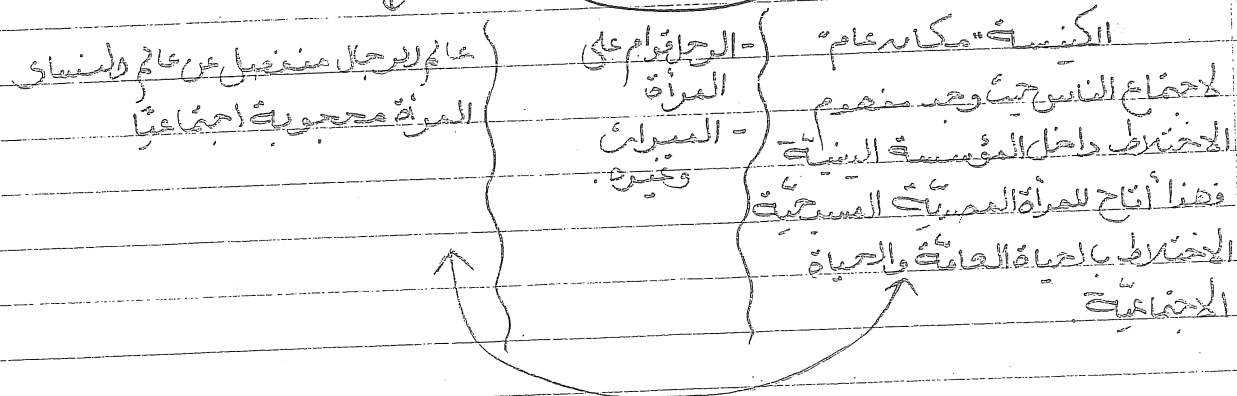 الكنيسة "مكان عام"
لاجتماع الناس حيث وجد مفهوم
الاختلاط داخل المؤسسة الدينيّة
فهذا أتاح للمرأة المصريّة المسيحيّة
الاختلاط بالحياة العامّة والحياة
الاجتماعيّة.
- الرجل قوام على
المرأة
- الميراث
وغيره.
عالم الرجال منفصل عن عالم النساء
المرأة محجوبة اجتماعيًّا